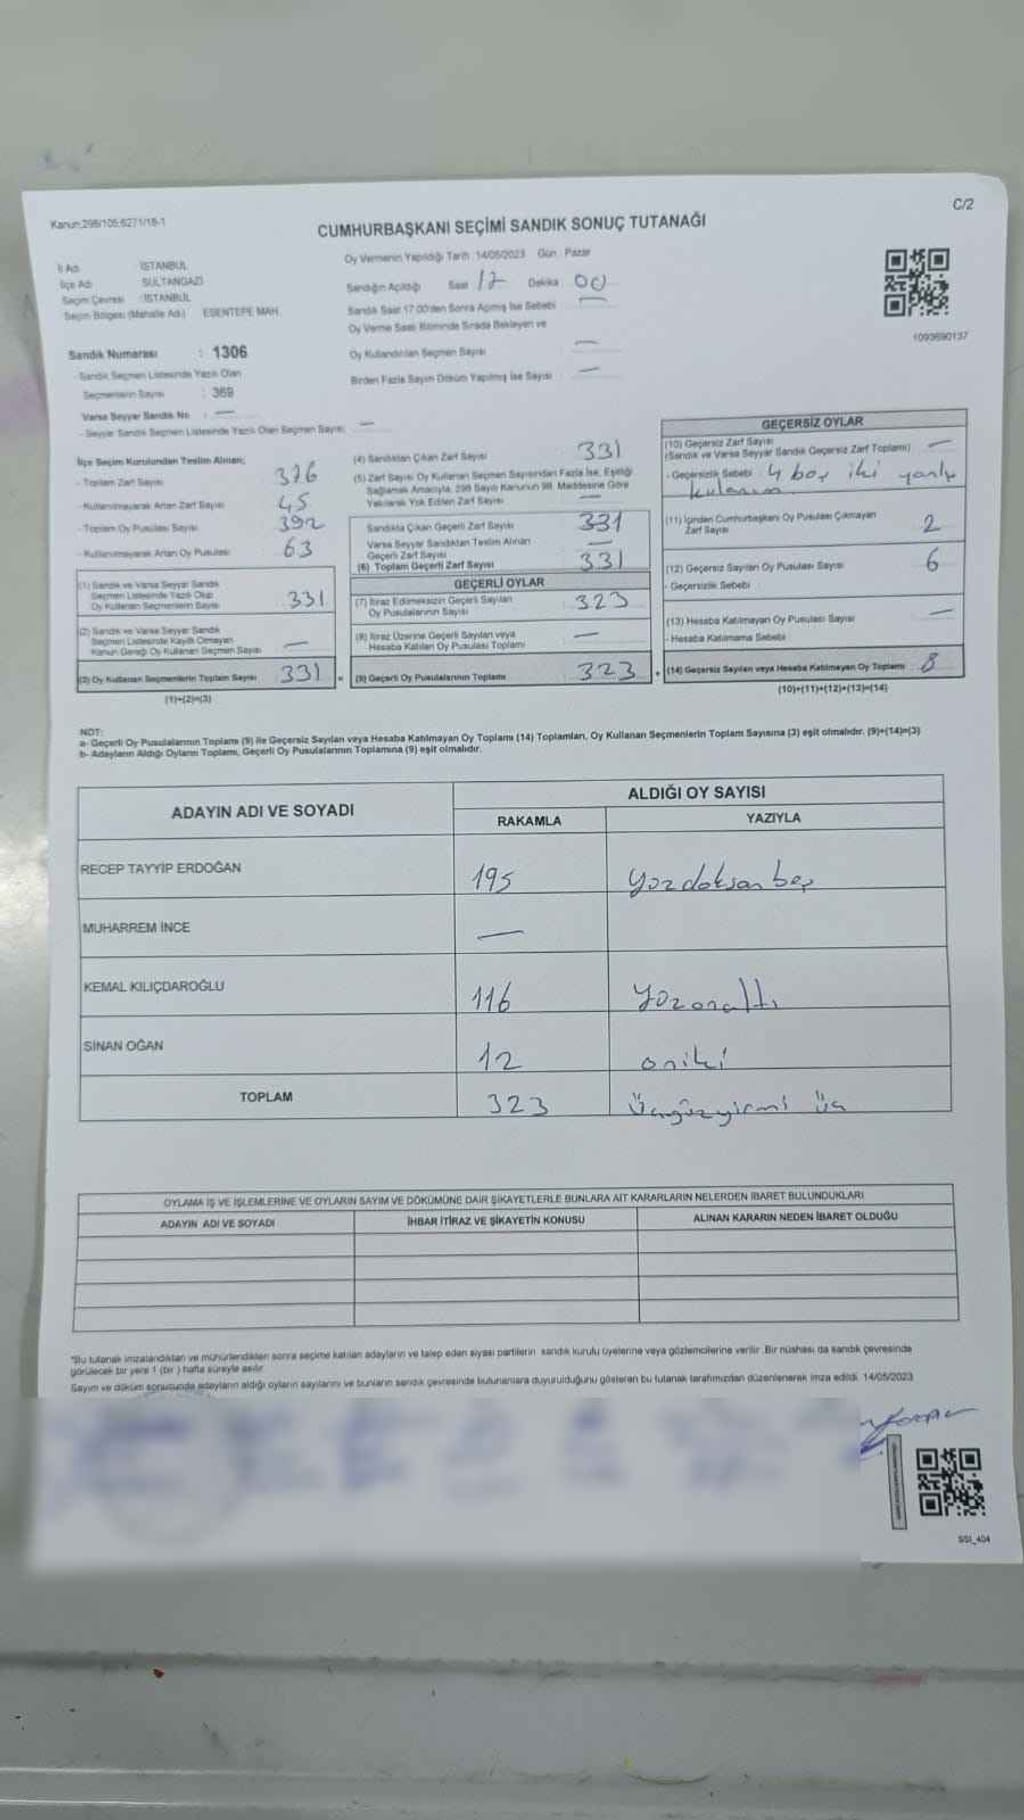 Kanun:298/105;6271/18-1
C/2
CUMHURBAŞKANI SEÇİMİ SANDIK SONUÇ TUTANAĞI
İl Adı : İSTANBUL
İlçe Adı : SULTANGAZİ
Seçim Çevresi : İSTANBUL
Seçim Bölgesi (Mahalle Adı) : ESENTEPE MAH.
Sandık Numarası : 1306
- Sandık Seçmen Listesinde Yazılı Olan
Seçmenlerin Sayısı : 369
Varsa Seyyar Sandık No : —
- Seyyar Sandık Seçmen Listesinde Yazılı Olan Seçmen Sayısı: —
Oy Vermenin Yapıldığı Tarih : 14/05/2023 Gün : Pazar
Sandığın Açıldığı Saat 17 Dakika 00
Sandık Saat 17.00'den Sonra Açılmış İse Sebebi —
Oy Verme Saati Bitiminde Sırada Bekleyen ve
Oy Kullandırılan Seçmen Sayısı —
Birden Fazla Sayım Döküm Yapılmış İse Sayısı —
1093690137
İlçe Seçim Kurulundan Teslim Alınan;
- Toplam Zarf Sayısı 376
- Kullanılmayarak Artan Zarf Sayısı 45
- Toplam Oy Pusulası Sayısı 392
- Kullanılmayarak Artan Oy Pusulası 63
(1) Sandık ve Varsa Seyyar Sandık
Seçmen Listesinde Yazılı Olup
Oy Kullanan Seçmenlerin Sayısı 331
(2) Sandık ve Varsa Seyyar Sandık
Seçmen Listesinde Kayıtlı Olmayan
Kanun Gereği Oy Kullanan Seçmen Sayısı —
(3) Oy Kullanan Seçmenlerin Toplam Sayısı 331 =
(1)+(2)=(3)
(4) Sandıktan Çıkan Zarf Sayısı 331
(5) Zarf Sayısı Oy Kullanan Seçmen Sayısından Fazla İse, Eşitliği
Sağlamak Amacıyla, 298 Sayılı Kanunun 98. Maddesine Göre
Yakılarak Yok Edilen Zarf Sayısı —
Sandıkta Çıkan Geçerli Zarf Sayısı 331
Varsa Seyyar Sandıktan Teslim Alınan
Geçerli Zarf Sayısı —
(6) Toplam Geçerli Zarf Sayısı 331
GEÇERLİ OYLAR
(7) İtiraz Edilmeksizin Geçerli Sayılan
Oy Pusulalarının Sayısı 323
(8) İtiraz Üzerine Geçerli Sayılan veya
Hesaba Katılan Oy Pusulası Toplamı —
(9) Geçerli Oy Pusulalarının Toplamı 323 +
GEÇERSİZ OYLAR
(10) Geçersiz Zarf Sayısı
(Sandık ve Varsa Seyyar Sandık Geçersiz Zarf Toplamı) —
- Geçersizlik Sebebi 4 boş iki yanlış
kulanım
(11) İçinden Cumhurbaşkanı Oy Pusulası Çıkmayan
Zarf Sayısı 2
(12) Geçersiz Sayılan Oy Pusulası Sayısı 6
- Geçersizlik Sebebi
(13) Hesaba Katılmayan Oy Pusulası Sayısı —
- Hesaba Katılmama Sebebi
(14) Geçersiz Sayılan veya Hesaba Katılmayan Oy Toplamı 8
(10)+(11)+(12)+(13)=(14)
NOT:
a- Geçerli Oy Pusulalarının Toplamı (9) ile Geçersiz Sayılan veya Hesaba Katılmayan Oy Toplamı (14) Toplamları, Oy Kullanan Seçmenlerin Toplam Sayısına (3) eşit olmalıdır. (9)+(14)=(3)
b- Adayların Aldığı Oyların Toplamı, Geçerli Oy Pusulalarının Toplamına (9) eşit olmalıdır.
ADAYIN ADI VE SOYADI
ALDIĞI OY SAYISI
RAKAMLA YAZIYLA
RECEP TAYYİP ERDOĞAN 195 Yüzdoksan beş
MUHARREM İNCE —
KEMAL KILIÇDAROĞLU 116 Yüzonaltı
SİNAN OĞAN 12 oniki
TOPLAM 323 Üçyüzyirmi üç
OYLAMA İŞ VE İŞLEMLERİNE VE OYLARIN SAYIM VE DÖKÜMÜNE DAİR ŞİKAYETLERLE BUNLARA AİT KARARLARIN NELERDEN İBARET BULUNDUKLARI
ADAYIN ADI VE SOYADI İHBAR İTİRAZ VE ŞİKAYETİN KONUSU ALINAN KARARIN NEDEN İBARET OLDUĞU
*Bu tutanak imzalandıktan ve mühürlendikten sonra seçime katılan adayların ve talep eden siyasi partilerin sandık kurulu üyelerine veya gözlemcilerine verilir. Bir nüshası da sandık çevresinde
görülecek bir yere 1 (bir ) hafta süreyle asılır.
Sayım ve döküm sonucunda adayların aldığı oyların sayılarını ve bunların sandık çevresinde bulunanlara duyurulduğunu gösteren bu tutanak tarafımızdan düzenlenerek imza edildi. 14/05/2023
SSI_404